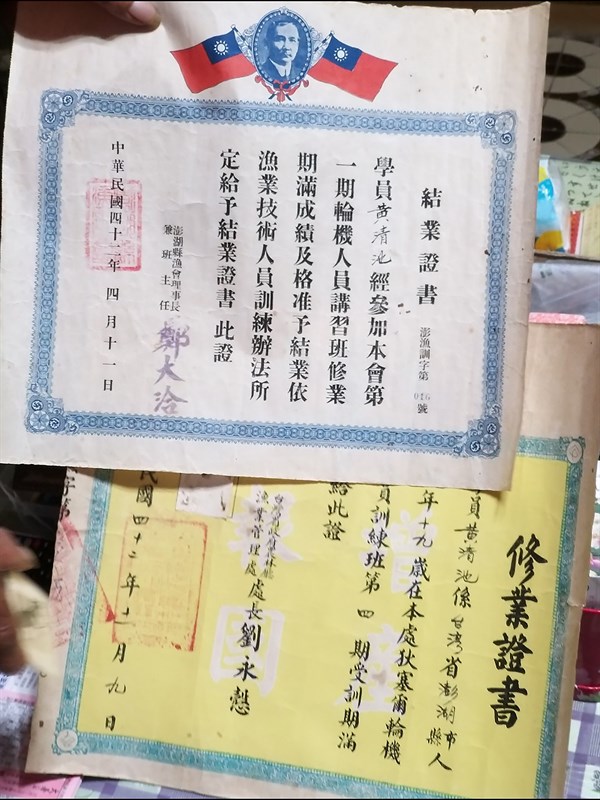 結業證書
澎漁訓字第016號
學員黃清池經參加本會第
一期輪機人員講習班修業
期滿成績及格准予結業依
漁業技術人員訓練辦法所
定給予結業證書 此證
澎湖縣漁會理事長
兼班主任
鄭大洽
中華民國四十二年四月十一日
修業證書
員黃清池係台灣省澎湖縣市人
年十九歲在本處狄塞爾輪機
員訓練班第四期受訓期滿
給此證
漁業管理處處長劉永慇
民國四十二年十一月九日